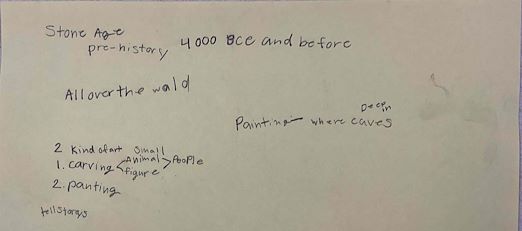 Stone Age
pre-history 4000 BCE and before
All over the wald
Painting where Deep in caves
2 kind of art small
1. carving < Animal > People
figure
2. panting
tell storys